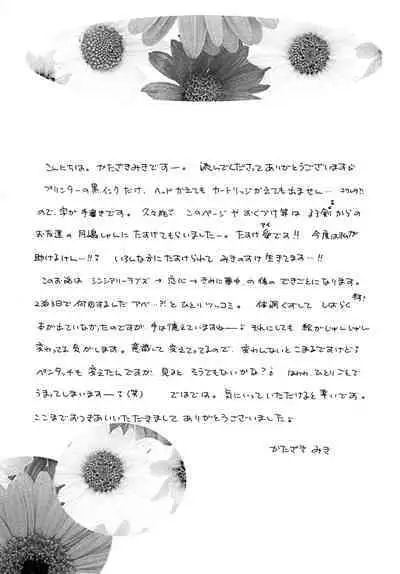 こんにちは。かたざきみきですー。読んでくださってありがとうございます♪
プリンターの黒インクだけ、ヘッドかえてもカートリッジかえても出ません…
ので、字が手書きです。久々です。このページやおくづけ等は からの
お友達の月嶋しゃんにたすけてもらいましたー。たすけ愛です!!今度は私が
助けるけんー!!? いろんな方にたすけられてみきのすけ生きてます…!!
このお話は シンシアリーラブズ→恋に→きみに夢中 の後のできごとになります。
2泊3日で何回するんだアベ…?!とひとりツッコミ。体調くずしてしばらく
本が出ていなかったのですが、手は憶えていますねー♪それにしても絵がじゅんじゅん
変わってる気がします。意識して変えてってるので、変わんないとこまるですけど♪
ペンタッチも変えたんですが、見るとそうでもないかな?♪ はわわ、ひとりごとで
うまってしまいますー♪(笑) ではでは。気にいっていただけると幸いです。
ここまでおつきあいいただきましてありがとうございました♪
かたざき みき